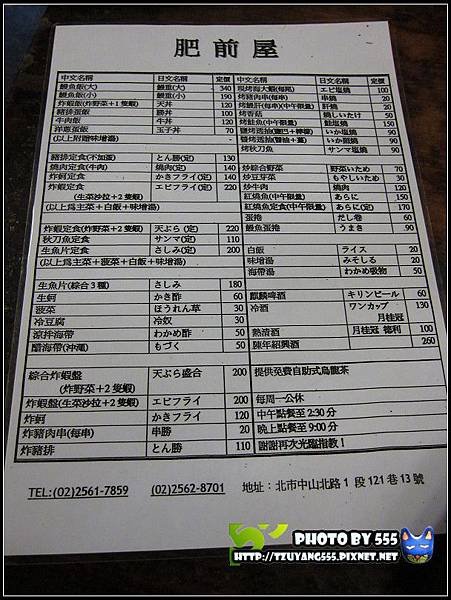 肥前屋
中文名稱 日文名稱 定價
鰻魚飯(大) 鰻重(大) 340
鰻魚飯(小) 鰻重(小) 190
炸蝦飯(炸野菜+1隻蝦) 天丼 120
豬排蛋飯 勝丼 100
牛肉飯 牛丼 120
洋蔥蛋飯 玉子丼 70
(以上附贈味增湯)
豬排定食(不加蛋) とん勝(定) 130
燒肉定食(牛肉) 燒肉(定) 140
炸蚵定食 かきフライ(定) 140
炸蝦定食 エビフライ(定) 220
(生菜沙拉+2隻蝦)
(以上為主菜+白飯+味增湯)
炸蝦定食(炸野菜+2隻蝦) 天ぷら(定) 220
秋刀魚定食 サンマ(定) 110
生魚片定食 さしみ(定) 200
(以上為主菜+菠菜+白飯+味增湯)
生魚片(綜合3種) さしみ 180
生蚵 かき酢 60
菠菜 ほうれん草 30
冷豆腐 冷奴 30
涼拌海帶 わかめ酢 50
醋海帶(沖繩) もづく 50
綜合炸蝦盤 天ぷら盛合 200
(炸野菜+2隻蝦)
炸蝦盤(生菜沙拉+2隻蝦) エビフライ 200
炸蚵 かきフライ 120
炸豬肉串(每串) 串勝 20
炸豬排 とん勝 110
中文名稱 日文名稱 定價
現烤海大蝦(每尾) エビ塩燒 100
烤豬肉串(每串) 串燒 20
烤鰻肝(每串)(中午限量) 肝燒 20
烤香菇 燒しいたけ 50
烤鮭魚(中午限量) 鮭塩燒 150
いか塩燒 90
いか照燒 90
烤秋刀魚 サンマ塩燒 90
炒綜合野菜 野菜いため 70
炒豆芽菜 もやしいため 30
炒牛肉 燒肉 120
紅燒魚(中午限量) あらに 150
紅燒魚定食(中午限量) あらに(定) 170
蛋捲 だし巻 60
鰻魚蛋捲 うまき 90
白飯 ライス 20
味增湯 みそしる 20
海帶湯 わかめ吸物 50
麒麟啤酒 キリンビール 60
冷酒 ワンカップ 130
月桂冠
熱清酒 月桂冠 德利 100
陳年紹興酒 260
提供免費自助式烏龍茶
每周一公休
中午點餐至2:30分
晚上點餐至9:00分
謝謝再次光臨指教!
TEL:(02)2561-7859 (02)2562-8701 地址:北市中山北路1段121巷13號
PHOTO BY 555
HTTP://TZUYANG555.PIXNET.NET